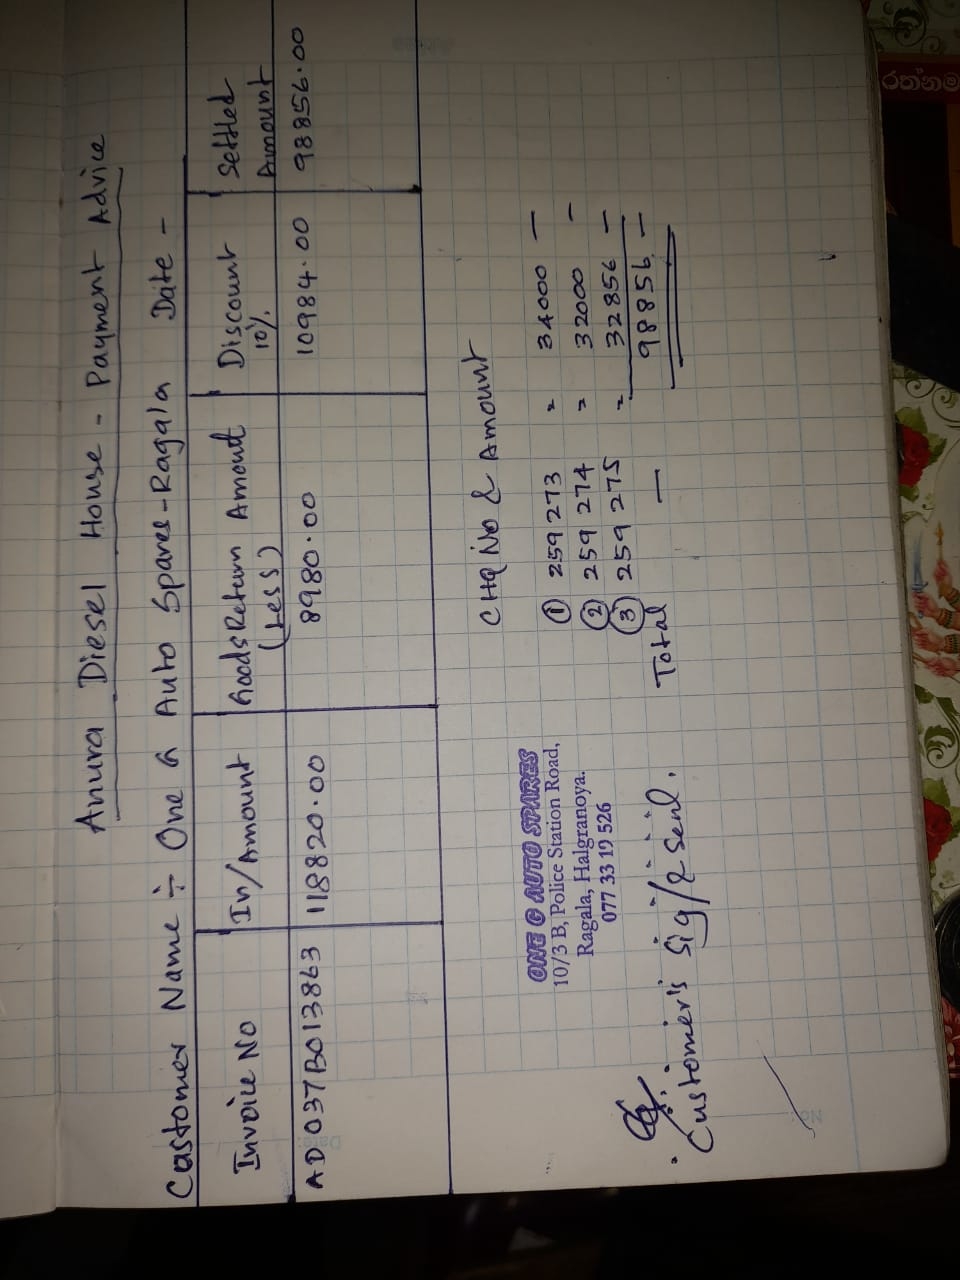 Anura Diesel House - Payment Advice
Customer Name ÷ One G Auto Spares - Ragala Date -
Invoice No In/Amount Goods Return Amount (Less) Discount 10% Settled Amount
AD037B013863 118820.00 8980.00 10984.00 98856.00
CHQ No & Amount
① 259 273 = 34000 —
② 259 274 = 32000 —
③ 259 275 = 32856 —
Total — 98856 —
ONE G AUTO SPARES
10/3 B, Police Station Road,
Ragala, Halgranoya.
077 33 19 526
Customer's Sig/& Seal.
No:
Date:
රත්නම